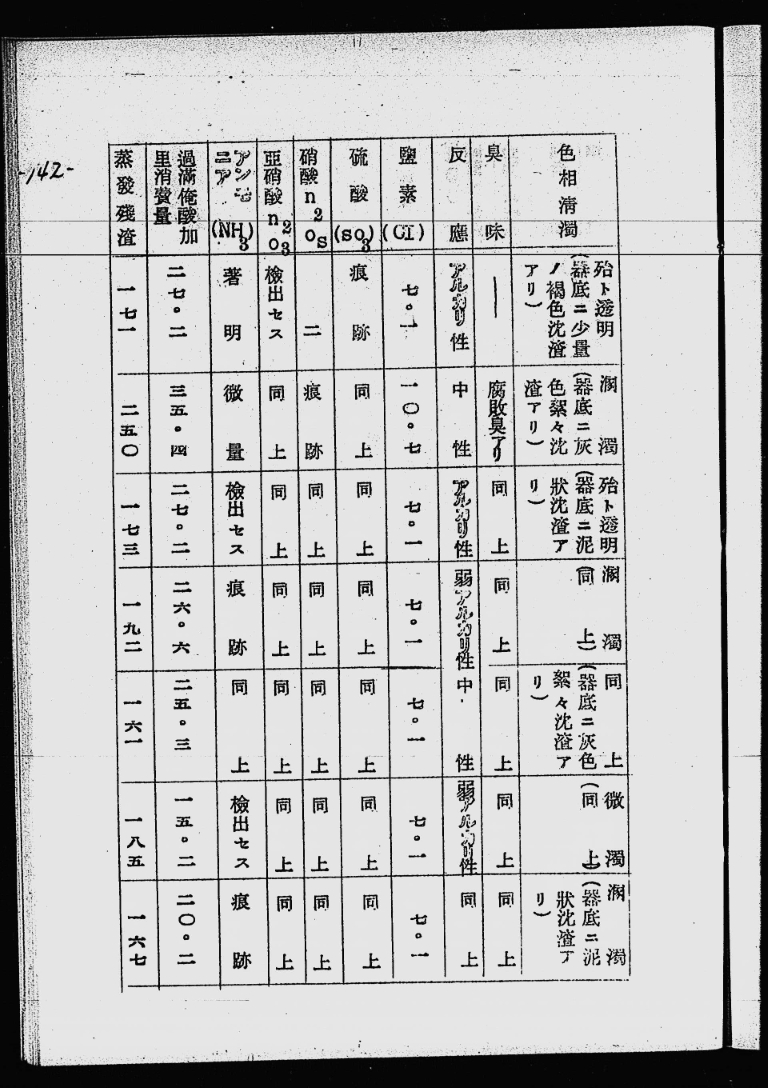 -142-
色相清濁
殆ト透明
(器底ニ少量
ノ褐色沈渣
アリ)
溷濁
(器底ニ灰
色絮々沈
渣アリ)
殆ト透明
(器底ニ泥
狀沈渣ア
リ)
溷濁
(同上)
同上
(器底ニ灰色
絮々沈渣ア
リ)
微濁
(同上)
溷濁
(器底ニ泥
狀沈渣ア
リ)
臭味
―
腐敗臭アリ
同上
同上
同上
同上
同上
反應
アルカリ性
中性
アルカリ性
弱アルカリ性
中性
弱アルカリ性
同上
鹽素(Cl)
七。一
一〇。七
七。一
七。一
七。一
七。一
七。一
硫酸(so3)
痕跡
同上
同上
同上
同上
同上
同上
硝酸n2o5
二
痕跡
同上
同上
同上
同上
同上
亜硝酸n2o3
檢出セス
同上
同上
同上
同上
同上
同上
アンモ
ニア
(NH3)
著明
微量
檢出セス
痕跡
同上
檢出セス
痕跡
過滿俺酸加
里消費量
二七。二
三五。四
二七。二
二六。六
二五。三
一五。二
二〇。二
蒸發殘渣
一七一
二五〇
一七三
一九二
一六一
一八五
一六七